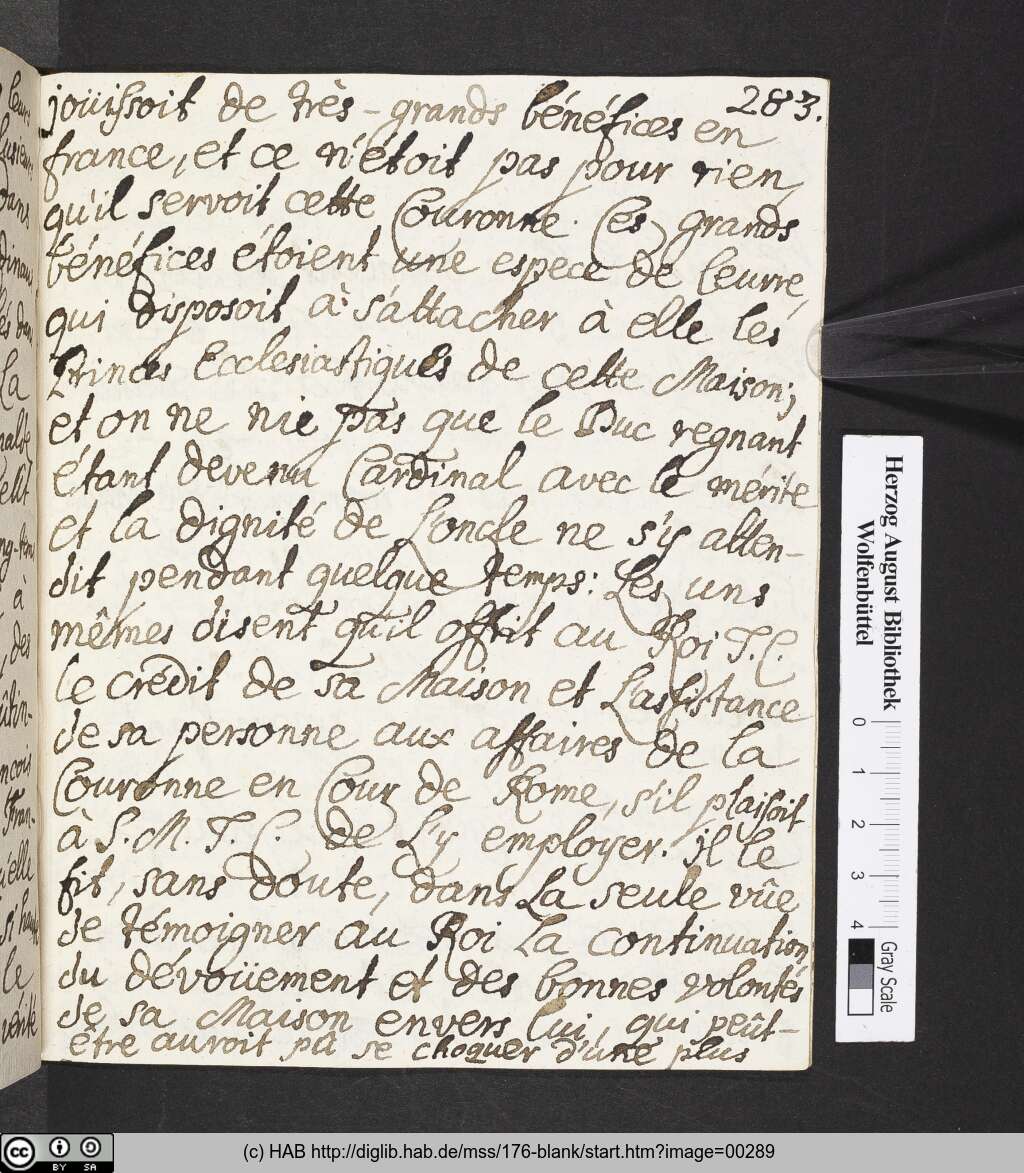 283.
joüissoit de très-grands bénéfices en
france, et ce n'étoit pas pour rien,
qu'il servoit cette Couronne. Ces grands
bénéfices étoient une espece de Leurre,
qui disposoit à s'attacher à elle les
Princes Ecclesiastiques de cette Maison;
et on ne nie pas que le Duc regnant
étant devenu Cardinal avec le mérite
et la dignité de L'oncle ne s'y atten-
dit pendant quelque temps: Les uns
mêmes disent qu'il offrit au Roi T. C.
le crédit de sa Maison et L'assistance
de sa personne aux affaires de la
Couronne en Cour de Rome, s'il plaisoit
à S. M. T. C. de L'y employer. il le
fit, sans doute, dans La seule vûe
de témoigner au Roi La continuation
du dévoüement et des bonnes volontés
de sa Maison envers lui, qui peût-
être auroit pû se choquer d'une plus
Herzog August Bibliothek
Wolfenbüttel
0 1 2 3 4
Gray Scale
cc BY SA
(c) HAB http://diglib.hab.de/mss/176-blank/start.htm?image=00289